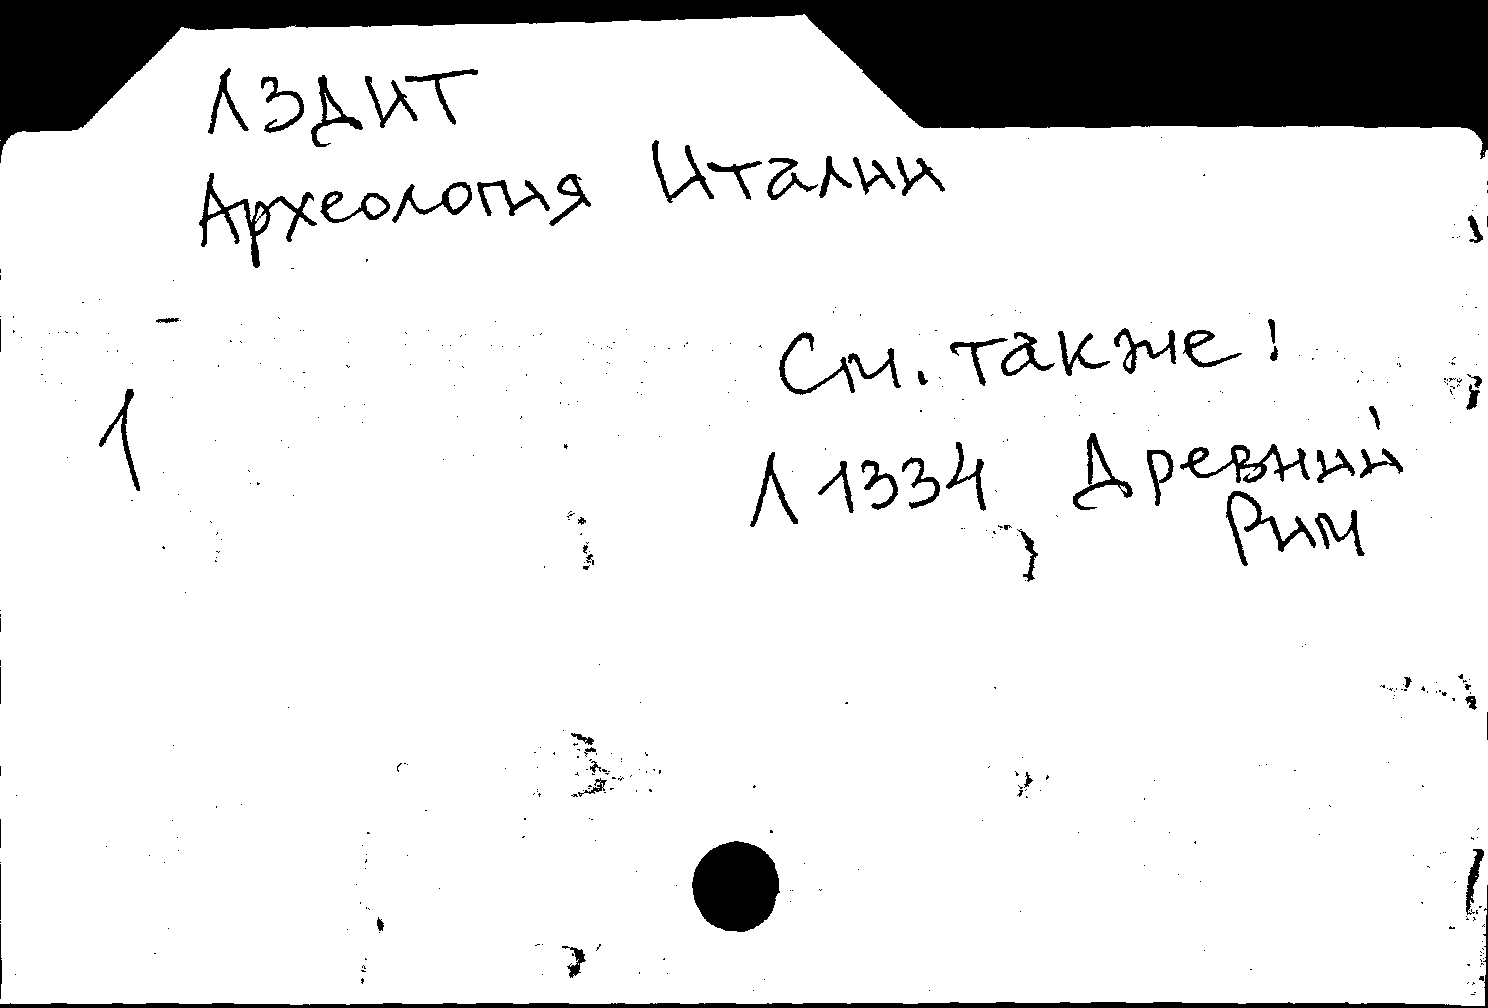 Л3ДИТ
Археология Италии
См. также!
1
Л1334 Древний
Рим